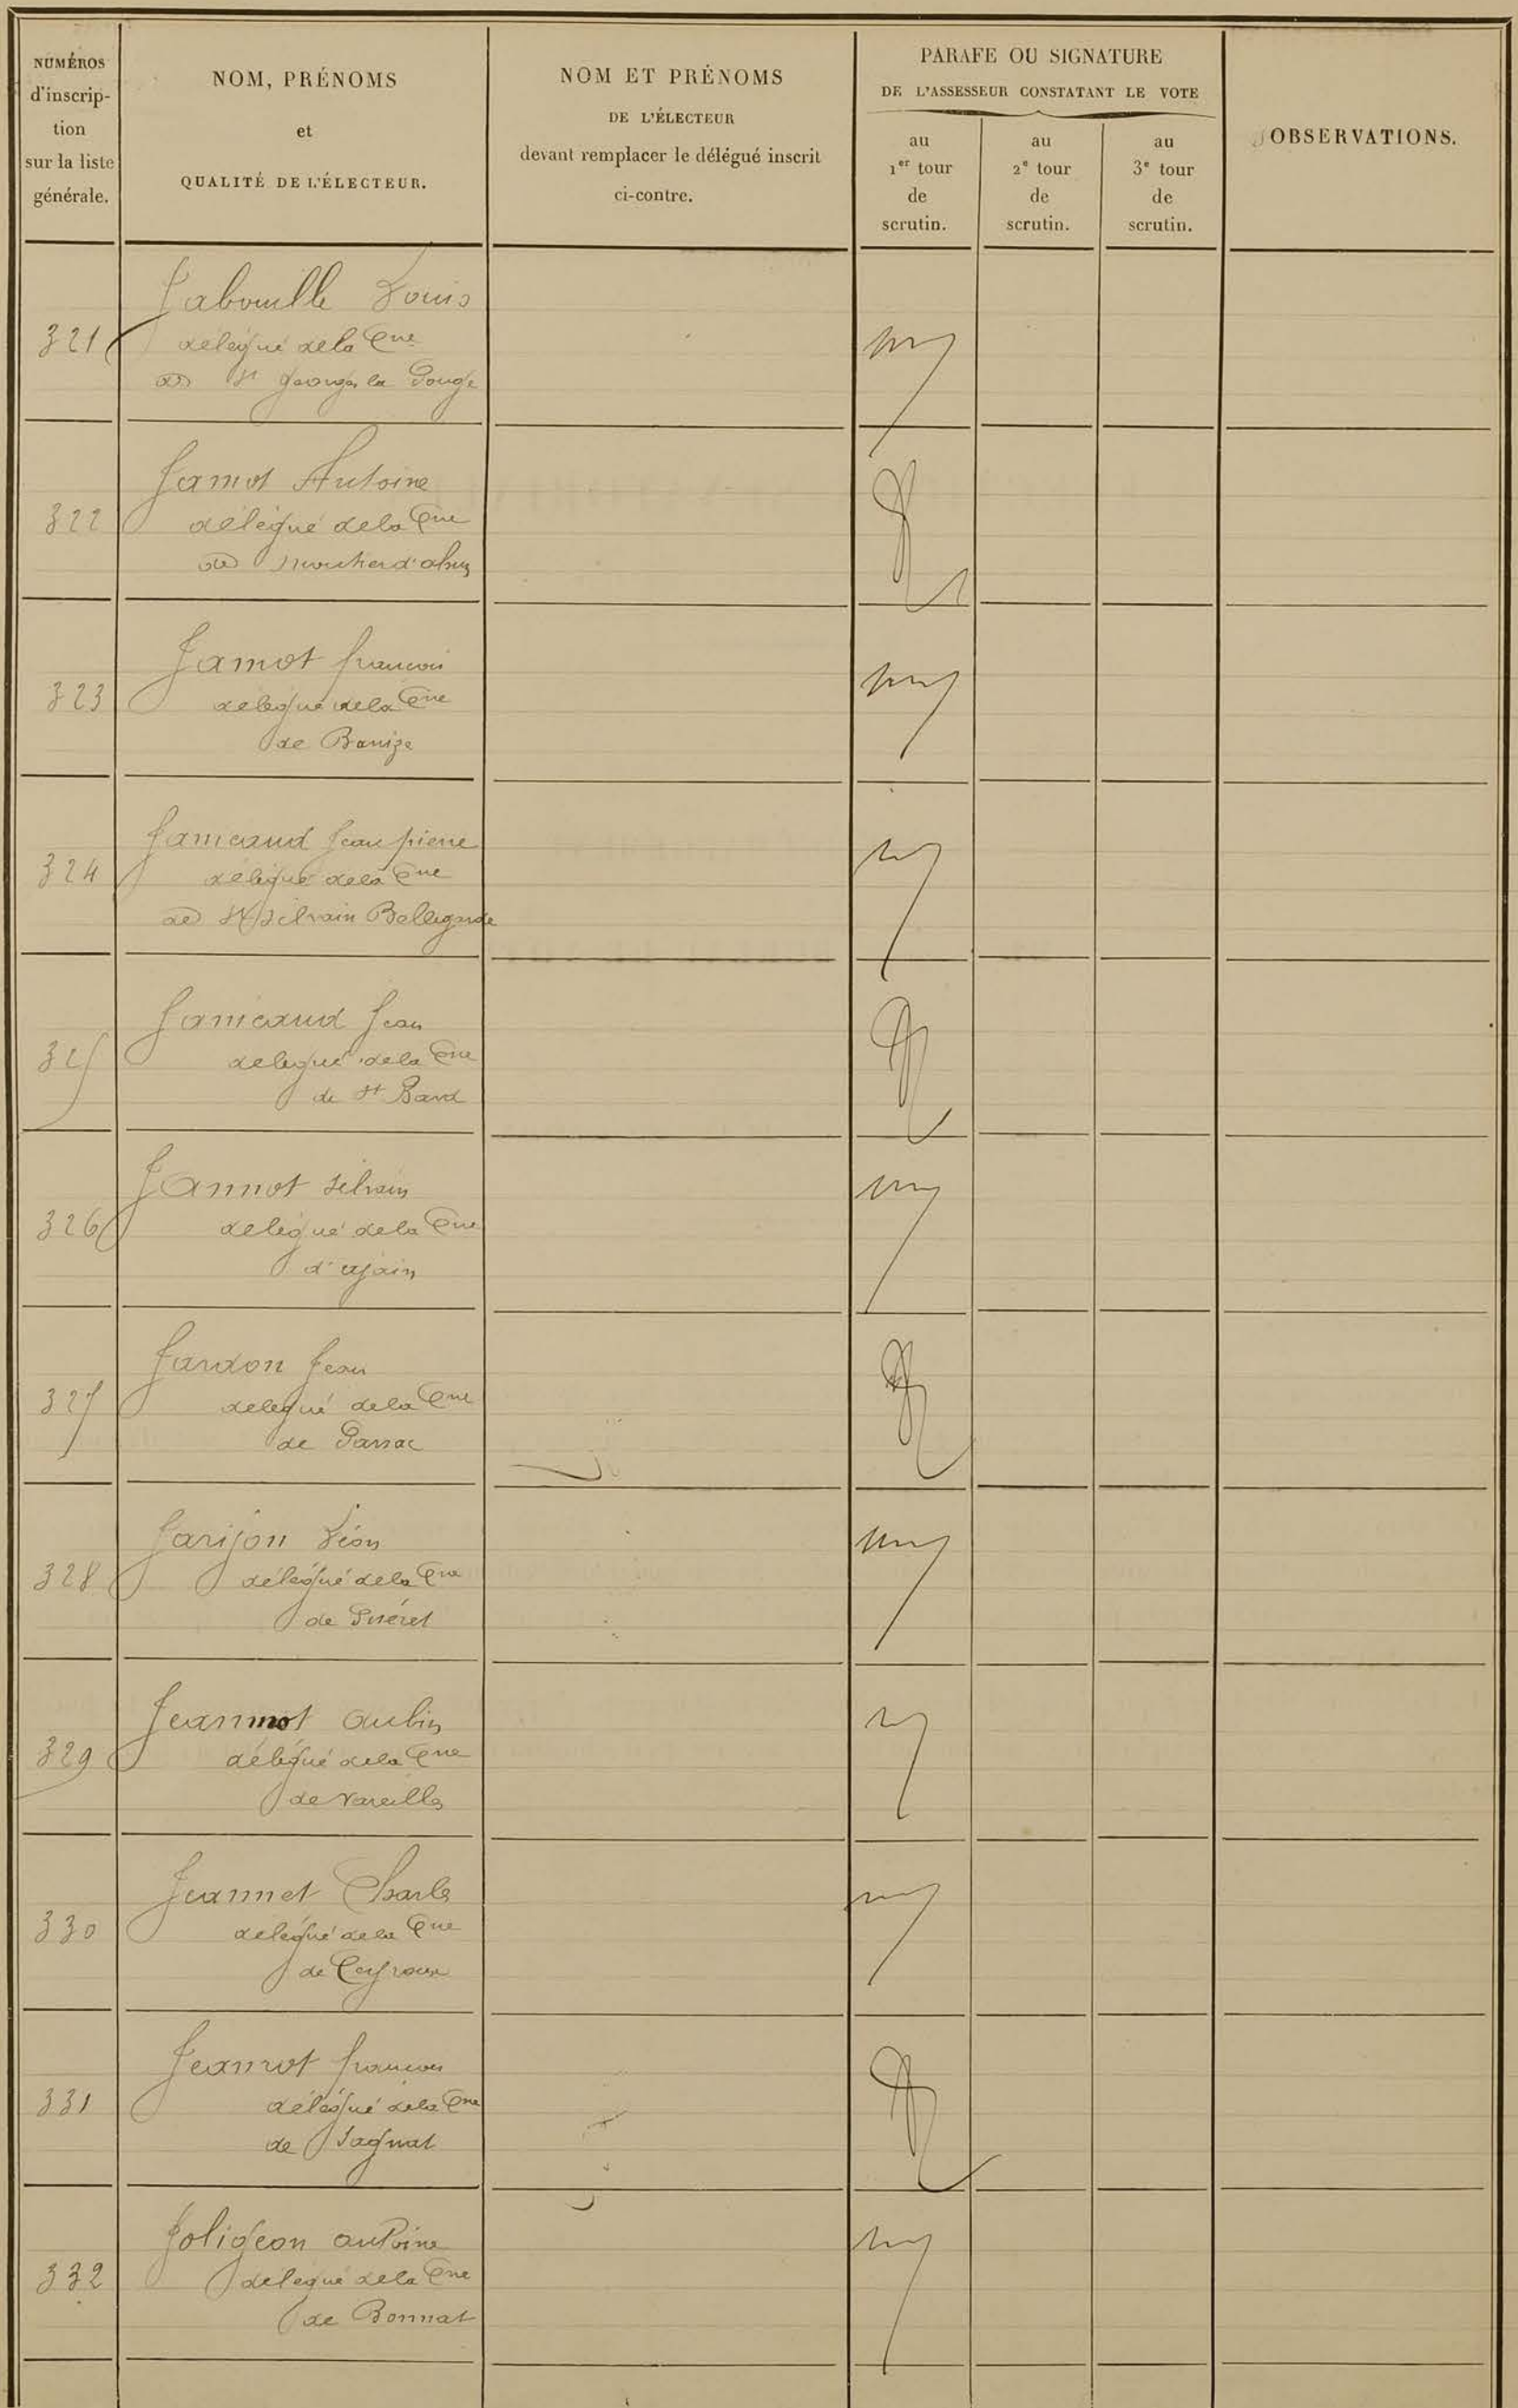 NUMÉROS
d'inscrip-
tion
sur la liste
générale.
NOM, PRÉNOMS
et
QUALITÉ DE L'ÉLECTEUR.
NOM ET PRÉNOMS
DE L'ÉLECTEUR
devant remplacer le délégué inscrit
ci-contre.
PARAFE OU SIGNATURE
DE L'ASSESSEUR CONSTATANT LE VOTE
au
1er tour
de
scrutin.
au
2e tour
de
scrutin.
au
3e tour
de
scrutin.
OBSERVATIONS.
Jabouille Louis
321 délégué de la Cne
de St Georges la Pouge
Jamot Antoine
322 délégué de la Cne
de Moutier d'ahun
Jamot francois
323 delegué de la Cne
de Banize
Janicaud Jean pierre
324 délégué de la Cne
de St Silvain Bellegarde
Janicaud Jean
325 delegué de la Cne
de St Bard
Jannot Silvain
326 delegué de la Cne
d'ajain
Jardon Jean
327 delegué de la Cne
de Parsac
Jarijon Léon
328 délégué de la Cne
de Guéret
Jeannot aubin
329 délégué de la Cne
de Vareilles
Jeannet Charles
330 delégué de la Cne
de Ceyroux
Jeannot francois
331 délégué de la Cne
de Sagnat
Joligeon antoine
332 délegué de la Cne
de Bonnat